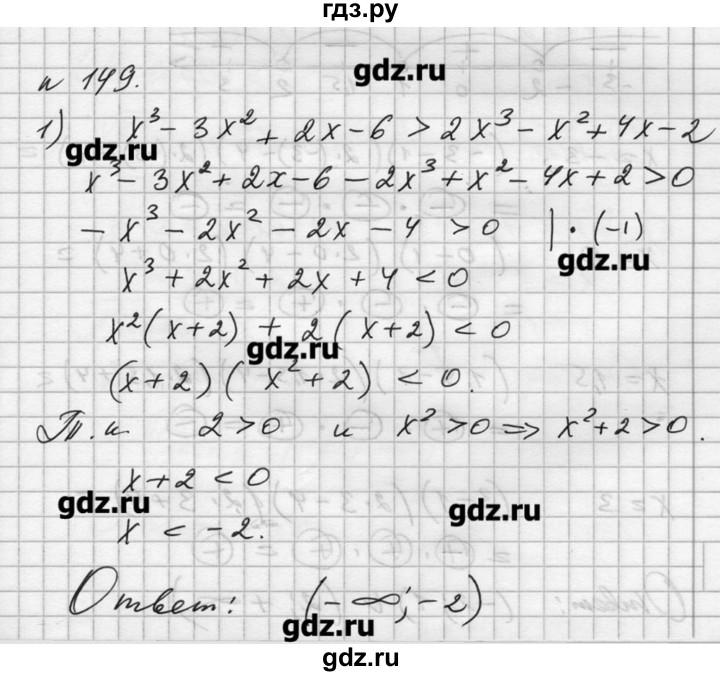 гдз.ру
gdz.ru
N 149.
1) x³ - 3x² + 2x - 6 > 2x³ - x² + 4x - 2
gdz.ru
x³ - 3x² + 2x - 6 - 2x³ + x² - 4x + 2 > 0
- x³ - 2x² - 2x - 4 > 0 | · (-1)
gdz.ru
x³ + 2x² + 2x + 4 < 0
x²(x+2) + 2(x+2) < 0
gdz.ru
(x+2)(x²+2) < 0.
Т.к 2>0 и x²>0 => x²+2>0.
x+2 < 0
gdz.ru gdz.ru
x < -2.
Ответ: (-∞; -2)
gdz.ru
gdz.ru